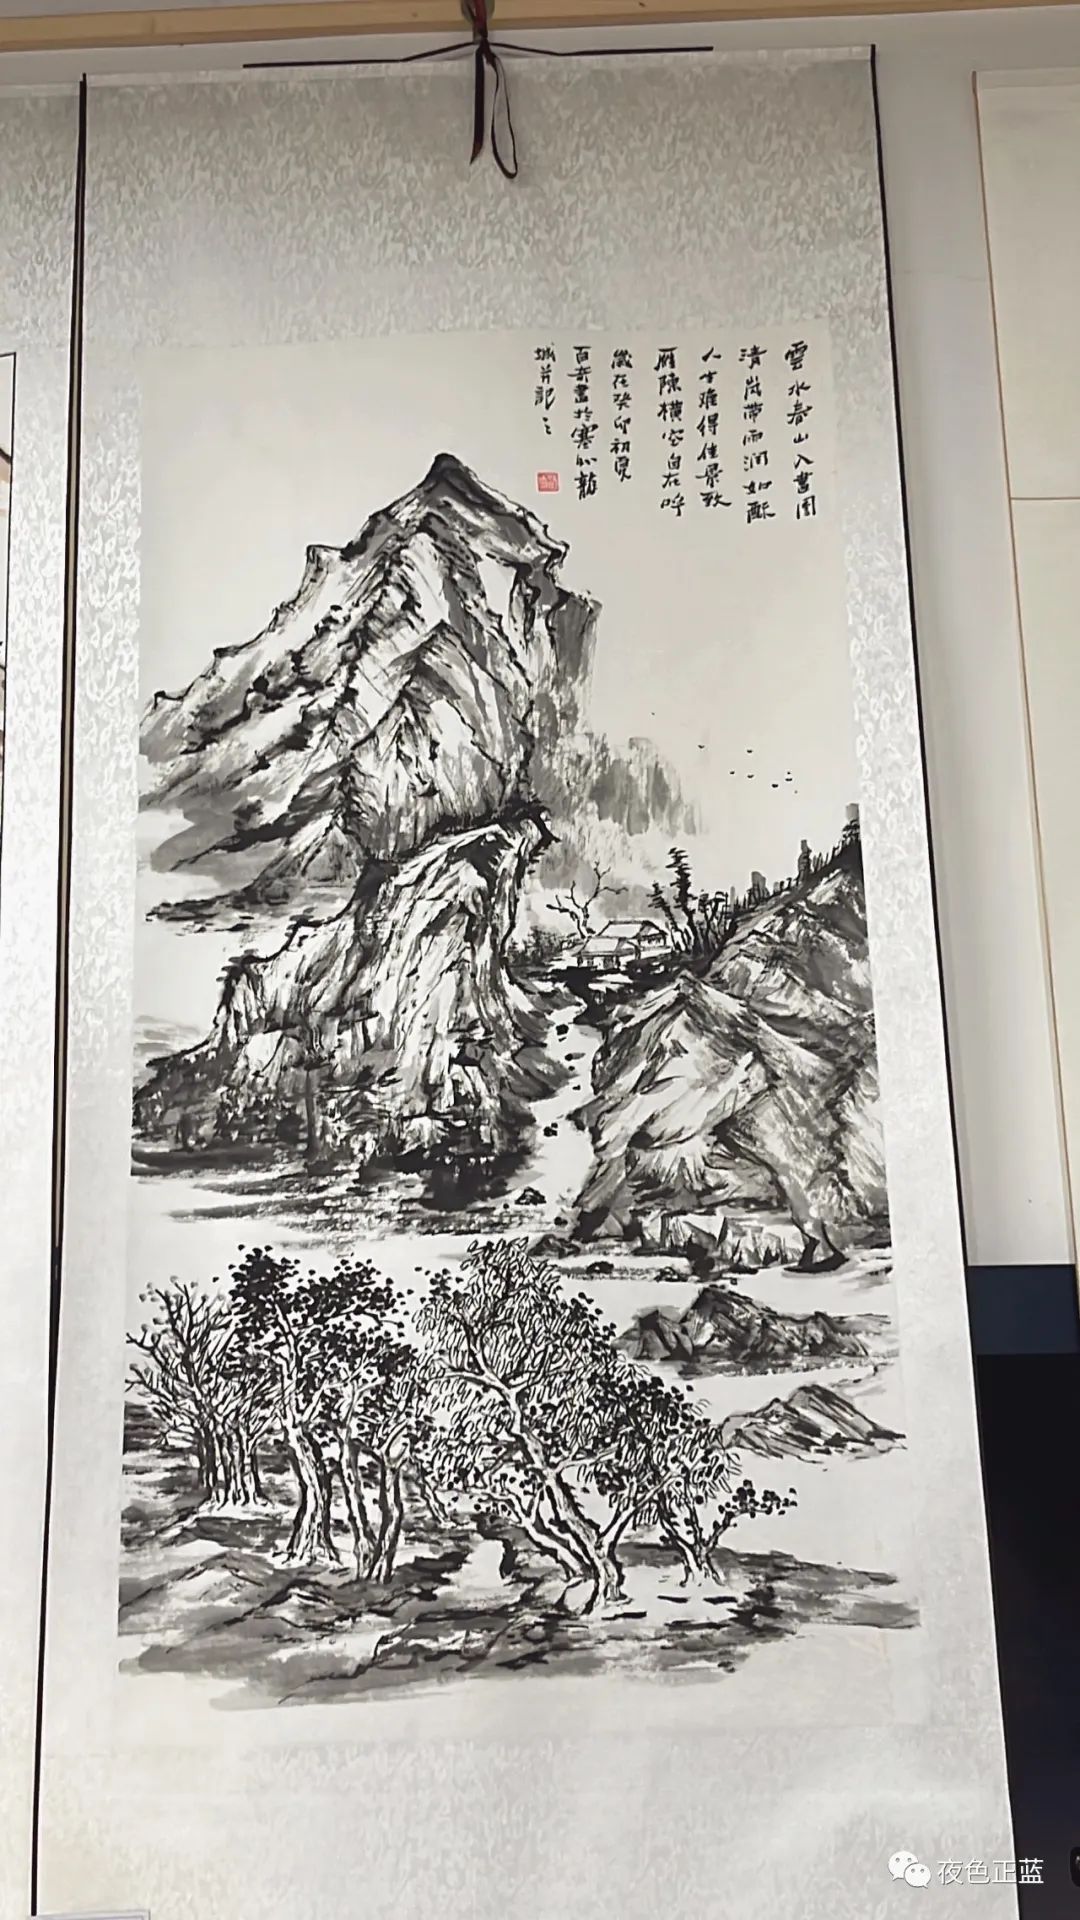 雲水春山入畫圖
清嵐帶雨潤如酥
人生難得佳景致
雁陳橫空自在呼
歲在癸卯初夏
百奇畫於寒心龍
城并記之
夜色正蓝